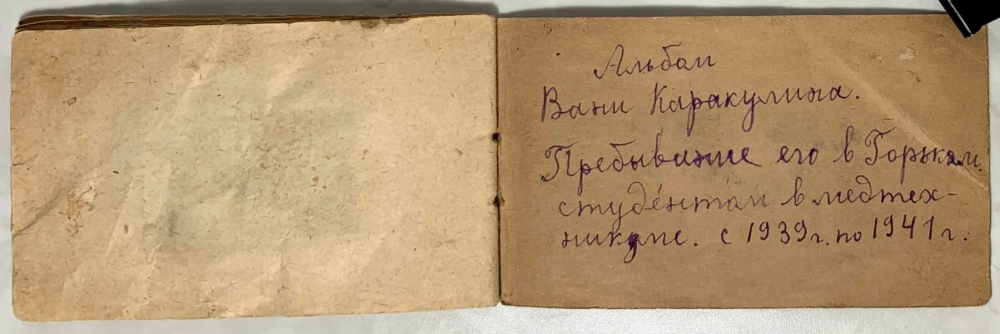 Альбом
Вани Каракулина.
Пребывание его в Горьком
студентом в медтех-
никуме. с 1939 г. по 1941 г.